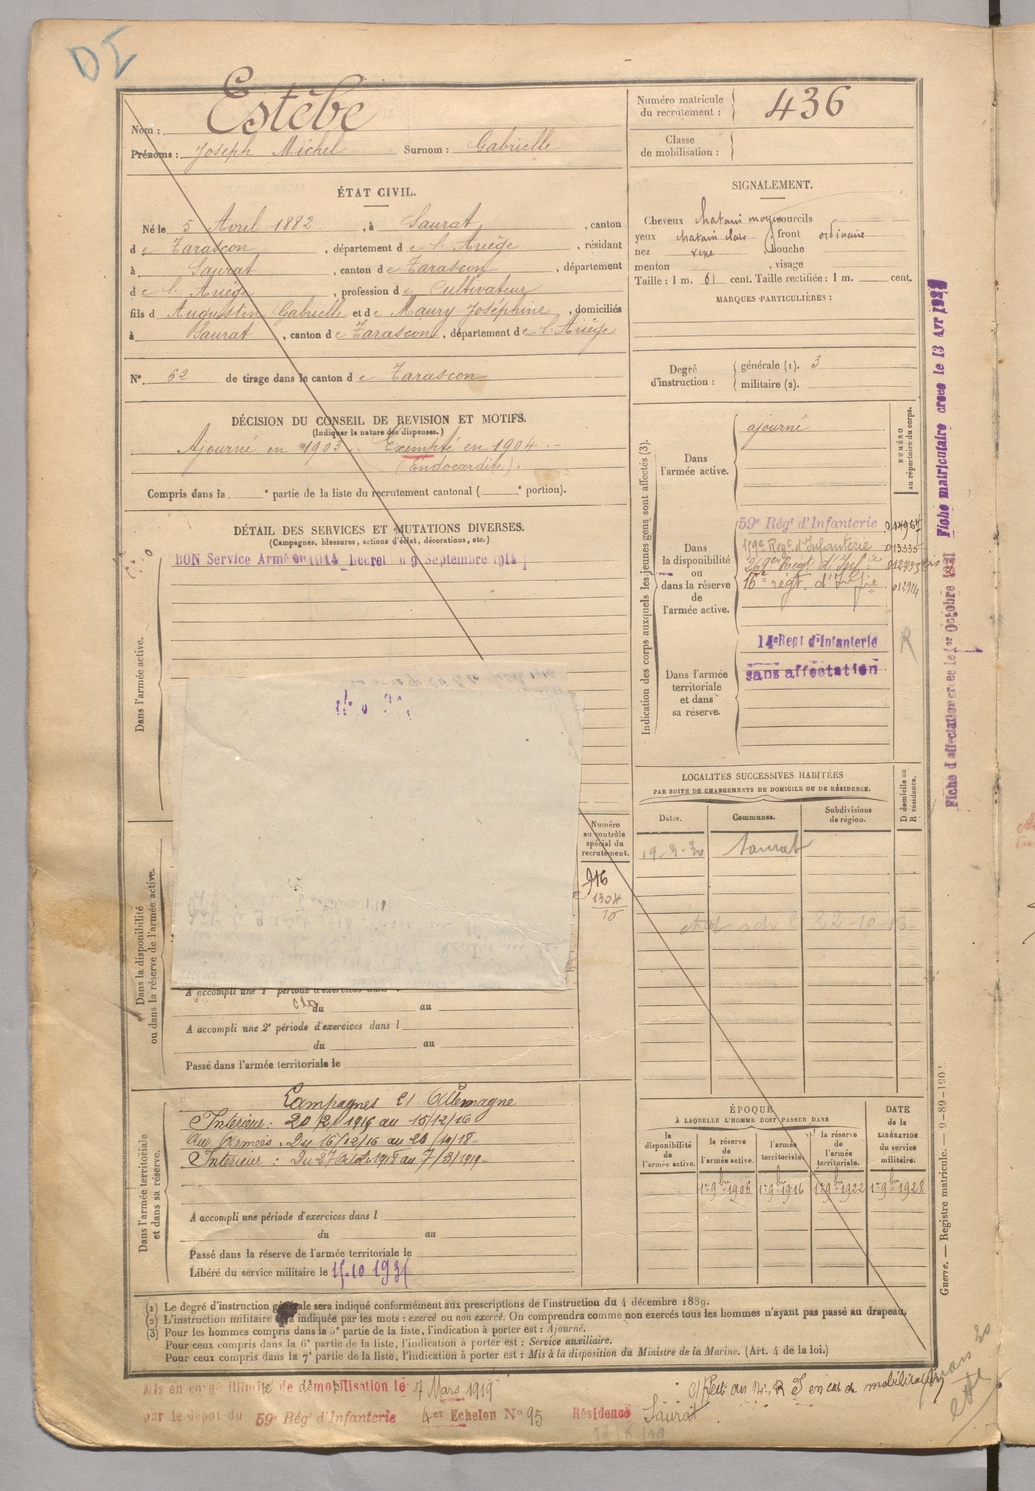 DI
Nom : Estèbe
Prénoms : Joseph Michel Surnom : Gabrielle
Numéro matricule du recrutement : 436
Classe de mobilisation :
ÉTAT CIVIL.
Né le 5 Avril 1882, à Saurat, canton
de Tarascon, département de l'Ariège, résidant
à Saurat, canton de Tarascon, département
de l'Ariège, profession de Cultivateur
fils d'Augustin Gabrielle et de Maury Joséphine, domiciliés
à Saurat, canton de Tarascon, département de l'Ariège
N° 62 de tirage dans le canton de Tarascon
SIGNALEMENT.
Cheveux chatain moyen sourcils
yeux chatain clair, front ordinaire
nez, bouche
menton, visage
Taille : 1 m. 61 cent. Taille rectifiée : 1 m. cent.
MARQUES PARTICULIÈRES :
Degré d'instruction : générale (1). 3
militaire (2).
DÉCISION DU CONSEIL DE REVISION ET MOTIFS.
(Indiquer la nature des dispenses.)
Ajourné en 1903. Exempté en 1904
(Endocardite).
Compris dans la e partie de la liste du recrutement cantonal ( e portion).
DÉTAIL DES SERVICES ET MUTATIONS DIVERSES.
(Campagnes, blessures, actions d'éclat, décorations, etc.)
BON Service Armé en 1914 Décret du 9 Septembre 1914
Dans l'armée active.
Indication des corps auxquels les jeunes gens sont affectés (3).
NUMÉRO au répertoire du corps.
Dans l'armée active. ajourné
Dans la disponibilité ou dans la réserve de l'armée active.
59e Régt d'Infanterie
Régt d'Infanterie
Régt d'Inf
16e régt d'Infie
Dans l'armée territoriale et dans sa réserve.
14e Regt d'Infanterie
sans affectation
R
Fiche d'affectation créée le 1er Octobre Fiche matriculaire créée le 13 Avr
LOCALITÉS SUCCESSIVES HABITÉES
PAR SUITE DE CHANGEMENTS DE DOMICILE OU DE RÉSIDENCE.
Dates. Communes. Subdivisions de région. D domicile ou R résidence.
19-3-30 Saurat
Dans la disponibilité ou dans la réserve de l'armée active.
Numéro au contrôle spécial du recrutement.
916
1304
A accompli une 1re période d'exercices dans l
du au
A accompli une 2e période d'exercices dans l
du au
Passé dans l'armée territoriale le
Dans l'armée territoriale et dans sa réserve.
Campagnes Ct Allemagne
Intérieur : 20/2/1916 au 15/12/16
Aux Armées : Du 16/12/16 au
Intérieur : Du au 7/3/1919
A accompli une période d'exercices dans l
du au
Passé dans la réserve de l'armée territoriale le
Libéré du service militaire le 15.10 1931
ÉPOQUE
À LAQUELLE L'HOMME DOIT PASSER DANS
la disponibilité de l'armée active. la réserve de l'armée active. l'armée territoriale. la réserve de l'armée territoriale.
DATE de la LIBÉRATION du service militaire.
1er 9bre 1906 1er 9bre 1916 1er 9bre 1922 1er 9bre 1928
Guerre. — Registre matricule. — 9-89-1902
(1) Le degré d'instruction générale sera indiqué conformément aux prescriptions de l'instruction du 4 décembre 1889.
(2) L'instruction militaire sera indiquée par les mots : exercé ou non exercé. On comprendra comme non exercés tous les hommes n'ayant pas passé au drapeau.
(3) Pour les hommes compris dans la 5e partie de la liste, l'indication à porter est : Ajourné.
Pour ceux compris dans la 6e partie de la liste, l'indication à porter est : Service auxiliaire.
Pour ceux compris dans la 7e partie de la liste, l'indication à porter est : Mis à la disposition du Ministre de la Marine. (Art. 4 de la loi.)
Mis en congé illimité de démobilisation le 7 Mars 1919
par le dépôt du 59e Régt d'Infanterie 4er Echelon N° 95 Résidence Saurat
en cas de mobilisation